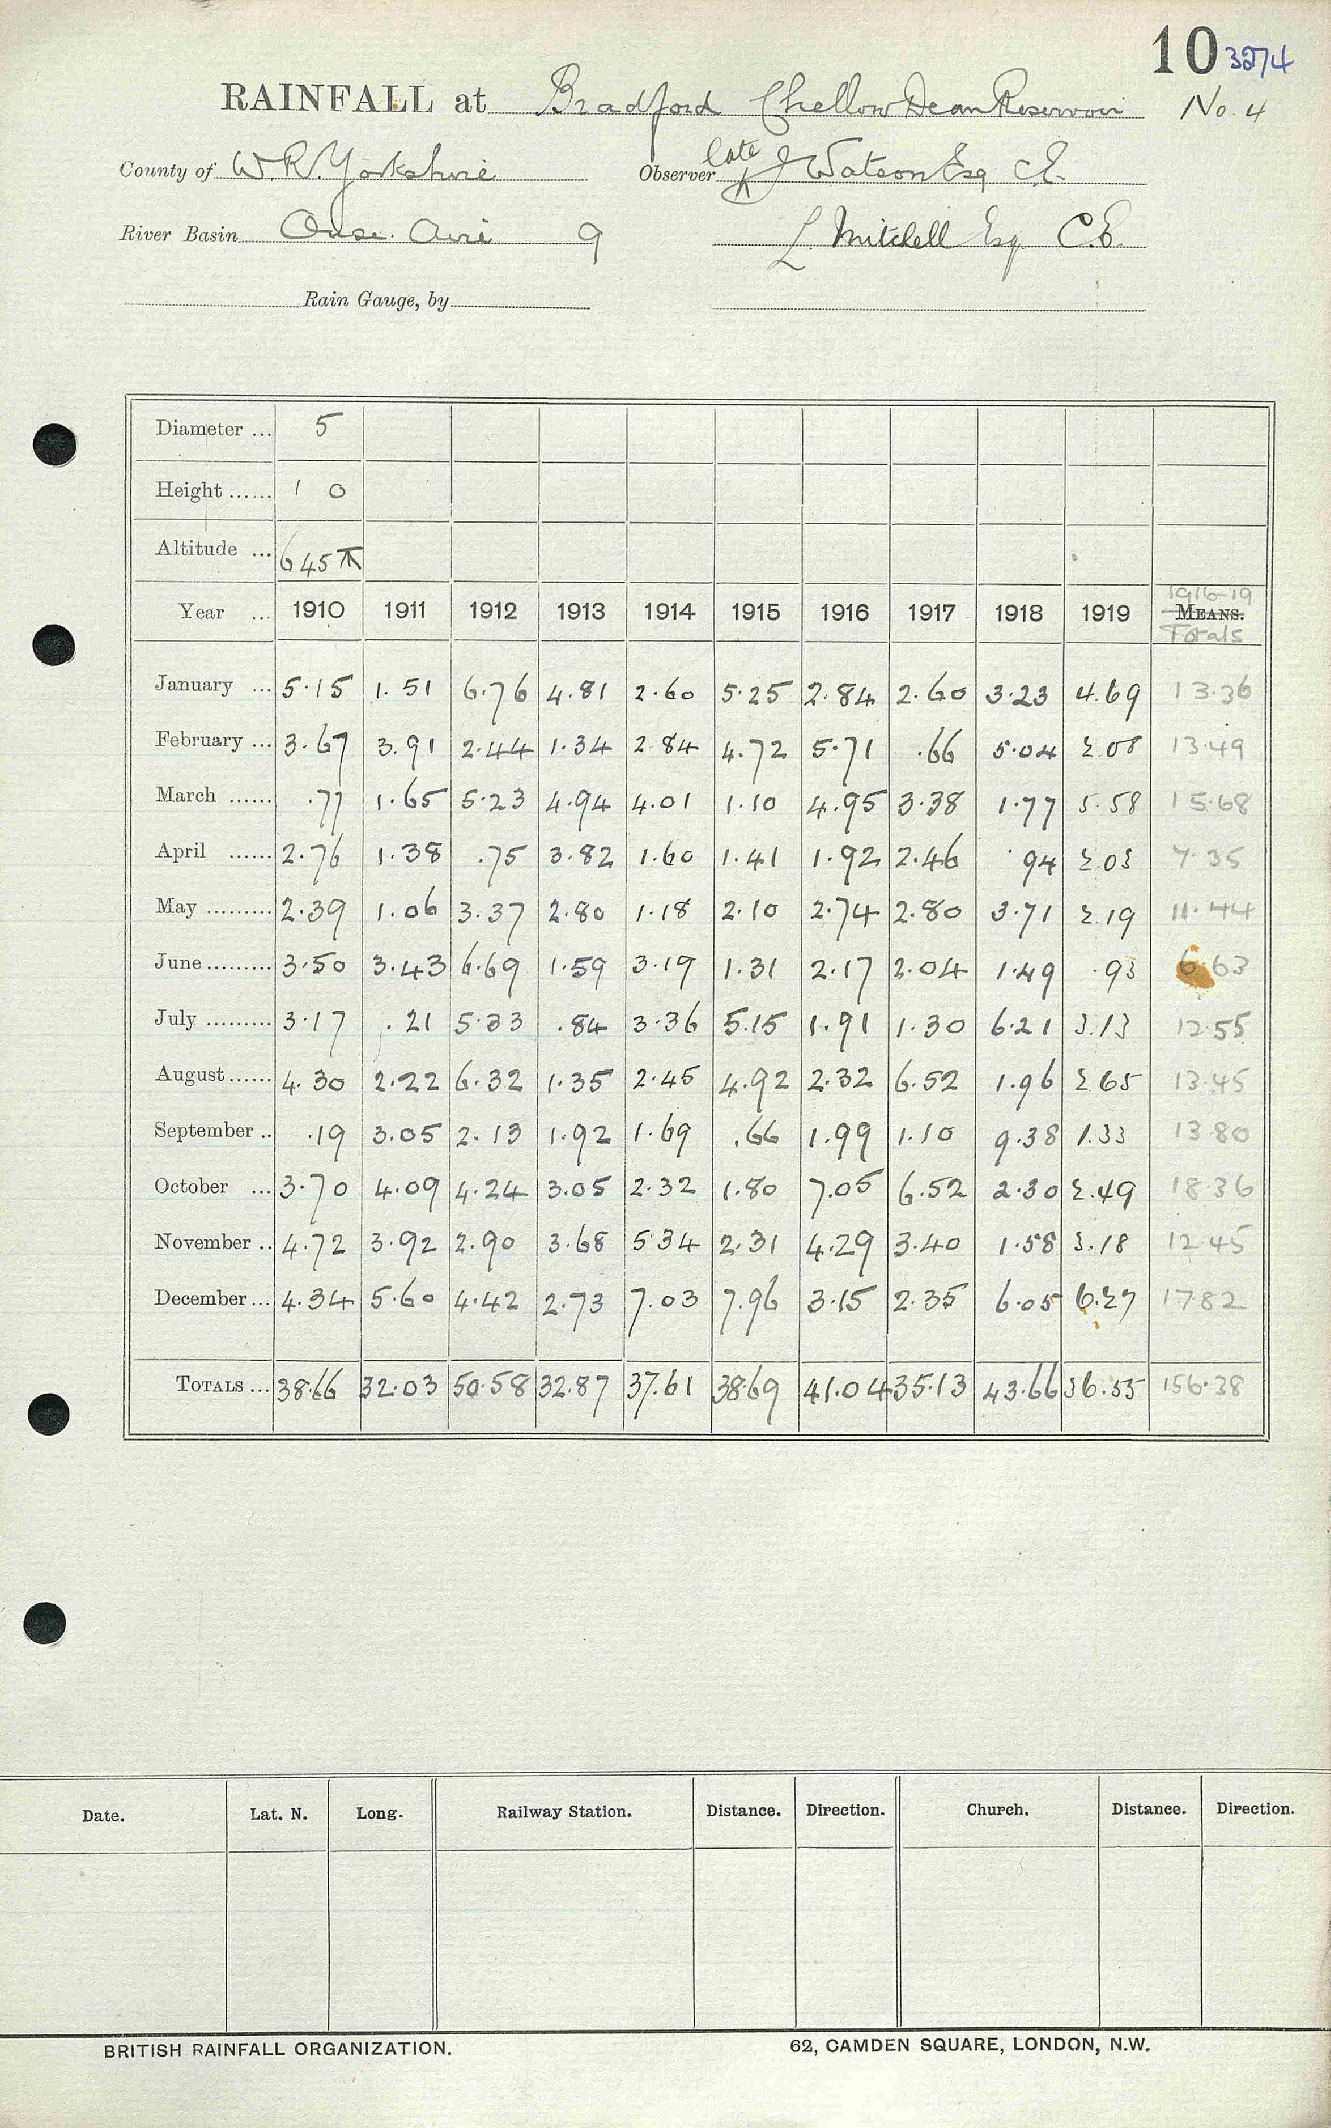 10 3274
RAINFALL at Bradford Chellow Dean Reservoir No. 4
County of W.R. Yorkshire Observer late J Watson Esq C.E.
River Basin Ouse. Aire 9 L Mitchell Esq C.E.
Rain Gauge, by
Diameter ... 5
Height ...... 1 0
Altitude ... 645
1916-19
Year ... 1910 1911 1912 1913 1914 1915 1916 1917 1918 1919 MEANS.
Totals
January ... 5.15 1.51 6.76 4.81 2.60 5.25 2.84 2.60 3.23 4.69 13.36
February ... 3.67 3.91 2.44 1.34 2.84 4.72 5.71 .66 5.04 2.08 13.49
March ...... .77 1.65 5.23 4.94 4.01 1.10 4.95 3.38 1.77 5.58 15.68
April ...... 2.76 1.38 .75 3.82 1.60 1.41 1.92 2.46 .94 2.03 7.35
May ......... 2.39 1.06 3.37 2.80 1.18 2.10 2.74 2.80 3.71 2.19 11.44
June ......... 3.50 3.43 6.69 1.59 3.19 1.31 2.17 2.04 1.49 .93 6.63
July ......... 3.17 .21 5.33 .84 3.36 5.15 1.91 1.30 6.21 3.13 12.55
August ...... 4.30 2.22 6.32 1.35 2.45 4.92 2.32 6.52 1.96 2.65 13.45
September .. .19 3.05 2.13 1.92 1.69 .66 1.99 1.10 9.38 1.33 13.80
October ... 3.70 4.09 4.24 3.05 2.32 1.80 7.05 6.52 2.30 2.49 18.36
November .. 4.72 3.92 2.90 3.68 5.34 2.31 4.29 3.40 1.58 3.18 12.45
December ... 4.34 5.60 4.42 2.73 7.03 7.96 3.15 2.35 6.05 6.27 17.82
TOTALS ... 38.66 32.03 50.58 32.87 37.61 38.69 41.04 35.13 43.66 36.55 156.38
Date. Lat. N. Long. Railway Station. Distance. Direction. Church. Distance. Direction.
BRITISH RAINFALL ORGANIZATION. 62, CAMDEN SQUARE, LONDON, N.W.